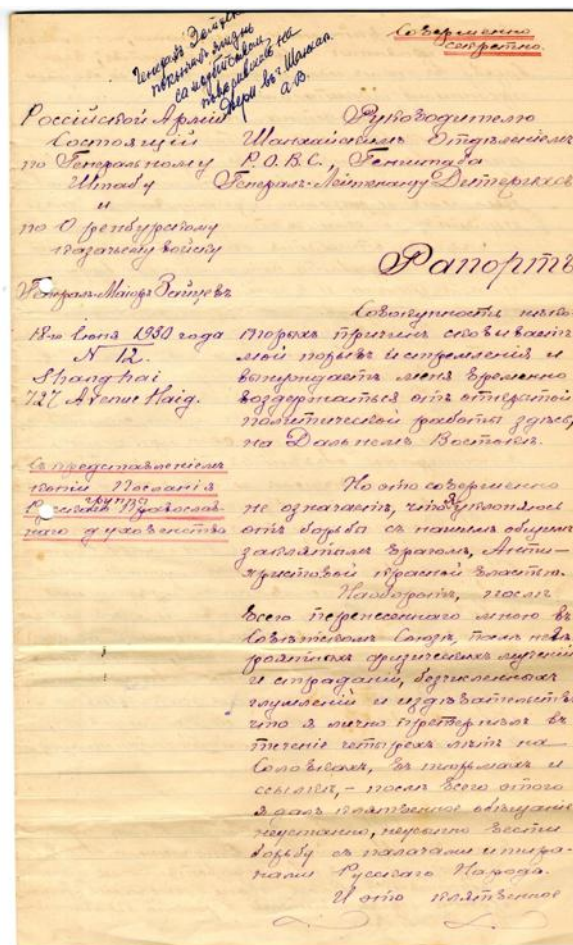 Совершенно
секретно.
Генералъ Зайцевъ
покончилъ жизнь
самоубійствомъ
повѣсившись на
двери въ г. Шанхаѣ.
А.В.
Россійской Арміи
Состоящій
по Генеральному
Штабу
и
по Оренбургскому
казачьему войску
Генералъ-Маіоръ Зайцевъ
18-го Іюня 1930 года
N 12.
Shanghai
727 Avenue Haig.
Съ представленіемъ
копіи Посланія
группы
Русскаго Православ-
наго духовенства
Руководителю
Шанхайскимъ Отдѣленіемъ
Р.О.В.С., Генштаба
Генералъ-Лейтенанту Дитерихсъ
Рапортъ
Совокупность нѣко-
торыхъ причинъ сковываетъ
мой порывъ и стремленія и
вынуждаетъ меня временно
воздержаться отъ открытой
политической работы здѣсь,
на Дальнемъ Востокѣ.
Но это совершенно
не означаетъ, что я уклоняюсь
отъ борьбы съ нашимъ общимъ
заклятымъ врагомъ, Анти-
христовой красной властью.
Наоборотъ, послѣ
всего перенесеннаго мною въ
Совѣтскомъ Союзѣ, послѣ невѣ-
роятныхъ физическихъ мученій
и страданій, безчисленныхъ
глумленій и издѣвательствъ
что я лично претерпѣлъ въ
теченіе четырехъ лѣтъ на
Соловкахъ, въ тюрьмахъ и
ссылкѣ, - послѣ всего этого
я далъ клятвенное обѣщаніе
неустанно, неусыпно вести
борьбу съ палачами и тира-
нами Русскаго Народа.
И это клятвенное